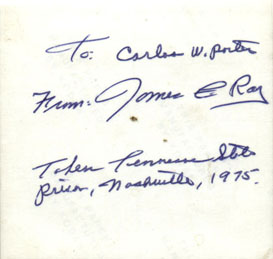 To: Carlos W. Porter
From: James E Ray
Taken Tennessee State
prison, Nashville, 1975.